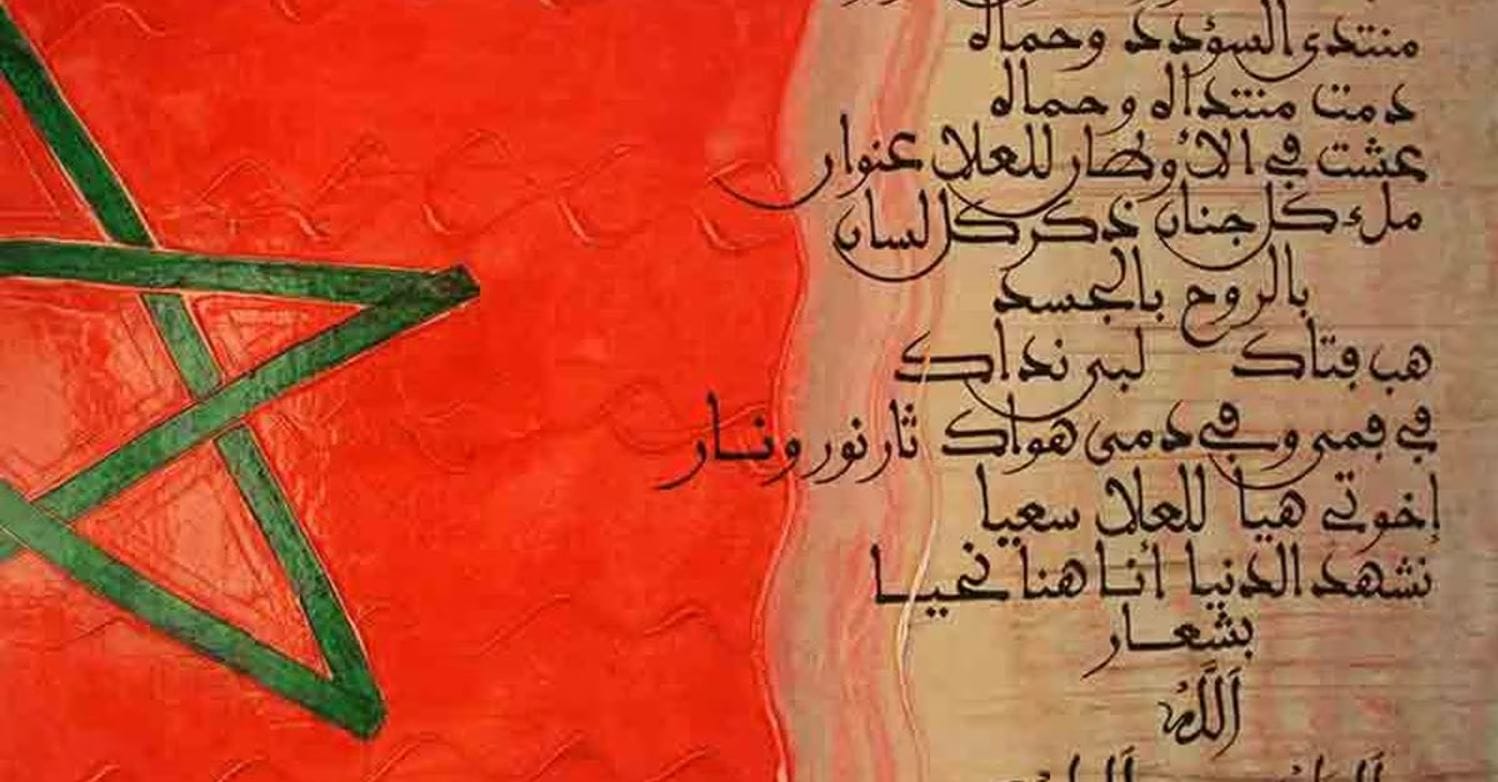 منتدى السؤدد وحماه
دمت منتداه وحماه
عشت في الأوطان للعلا عنوان
ملء كل جنان ذكر كل لسان
بالروح بالجسد
هب فتاك لبى نداك
في فمي وفي دمي هواك ثار نور ونار
إخوتي هيا للعلا سعيا
نشهد الدنيا أنا هنا نحيا
بشعار
الله